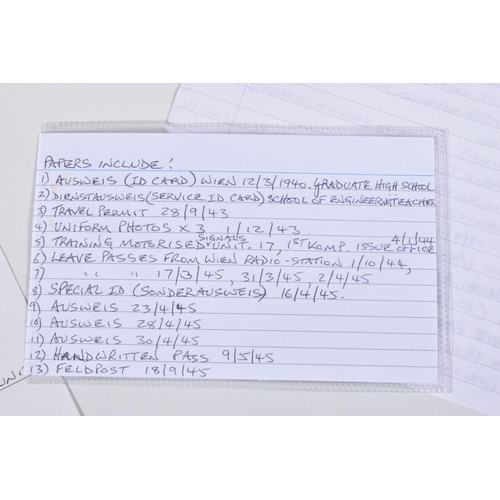 PAPERS INCLUDE:
1) AUSWEIS (ID CARD) WIEN 12/3/1940. GRADUATE HIGH SCHOOL
2) DIENSTAUSWEIS (SERVICE ID CARD) SCHOOL OF ENGINEER TEACHER
3) TRAVEL PERMIT 28/9/43
4) UNIFORM PHOTOS X 3 1/12/43
5) TRAINING MOTORISED SIGNALS UNIT. 17, 1ST KOMP. ISSUE OFFICE 4/1/44
6) LEAVE PASSES FROM WIEN RADIO-STATION 1/10/44,
7) " " 17/3/45, 31/3/45, 2/4/45
8) SPECIAL ID (SONDERAUSWEIS) 16/4/45.
9) AUSWEIS 23/4/45
10) AUSWEIS 28/4/45
11) AUSWEIS 30/4/45
12) HANDWRITTEN PASS 9/5/45
13) FELDPOST 18/9/45